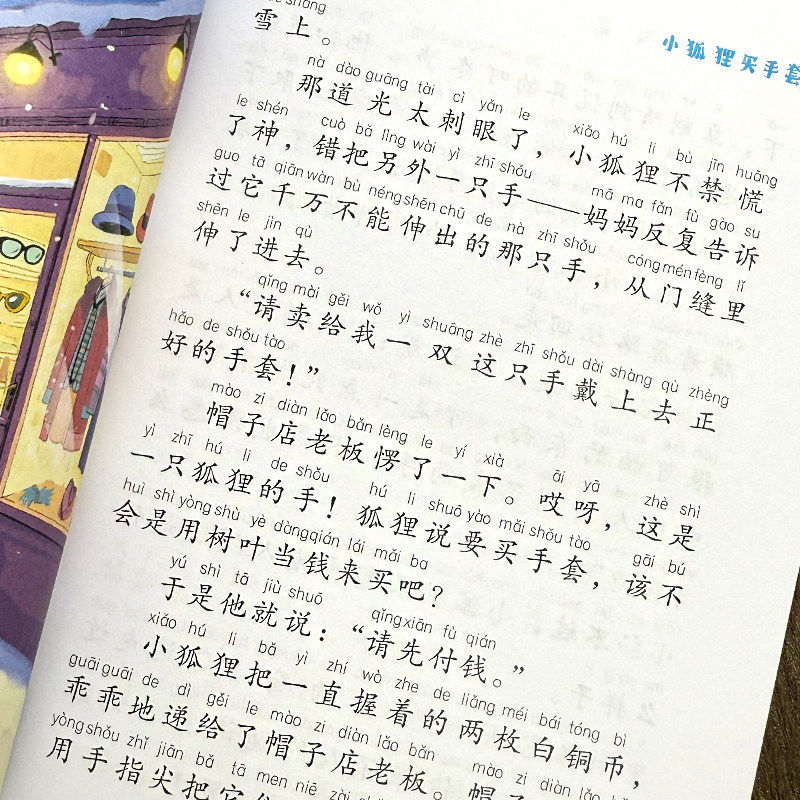 小狐狸买手套
shàng
雪上。
nà dào guāng tài cì yǎn le xiǎo hú li bù jīn huāng
那道光太刺眼了，小狐狸不禁慌
le shén cuò bǎ lìng wài yì zhī shǒu mā ma fǎn fù gào su
了神，错把另外一只手——妈妈反复告诉
guo tā qiān wàn bù néng shēn chū de nà zhī shǒu cóng mén fèng lǐ
过它千万不能伸出的那只手，从门缝里
shēn le jìn qù
伸了进去。
qǐng mài gěi wǒ yì shuāng zhè zhī shǒu dài shàng qù zhèng
“请卖给我一双这只手戴上去正
hǎo de shǒu tào
好的手套！”
mào zi diàn lǎo bǎn lèng le yí xià āi yā zhè shì
帽子店老板愣了一下。哎呀，这是
yì zhī hú li de shǒu hú li shuō yào mǎi shǒu tào gāi bú
一只狐狸的手！狐狸说要买手套，该不
huì shì yòng shù yè dàng qián lái mǎi ba
会是用树叶当钱来买吧？
yú shì tā jiù shuō qǐng xiān fù qián
于是他就说：“请先付钱。”
xiǎo hú li bǎ yì zhí wò zhe de liǎng méi bái tóng bì
小狐狸把一直握着的两枚白铜币，
guāi guāi de dì gěi le mào zi diàn lǎo bǎn mào zi diàn
乖乖地递给了帽子店老板。帽子
yòng shǒu zhǐ jiān bǎ tā men niē zài
用手指尖把它